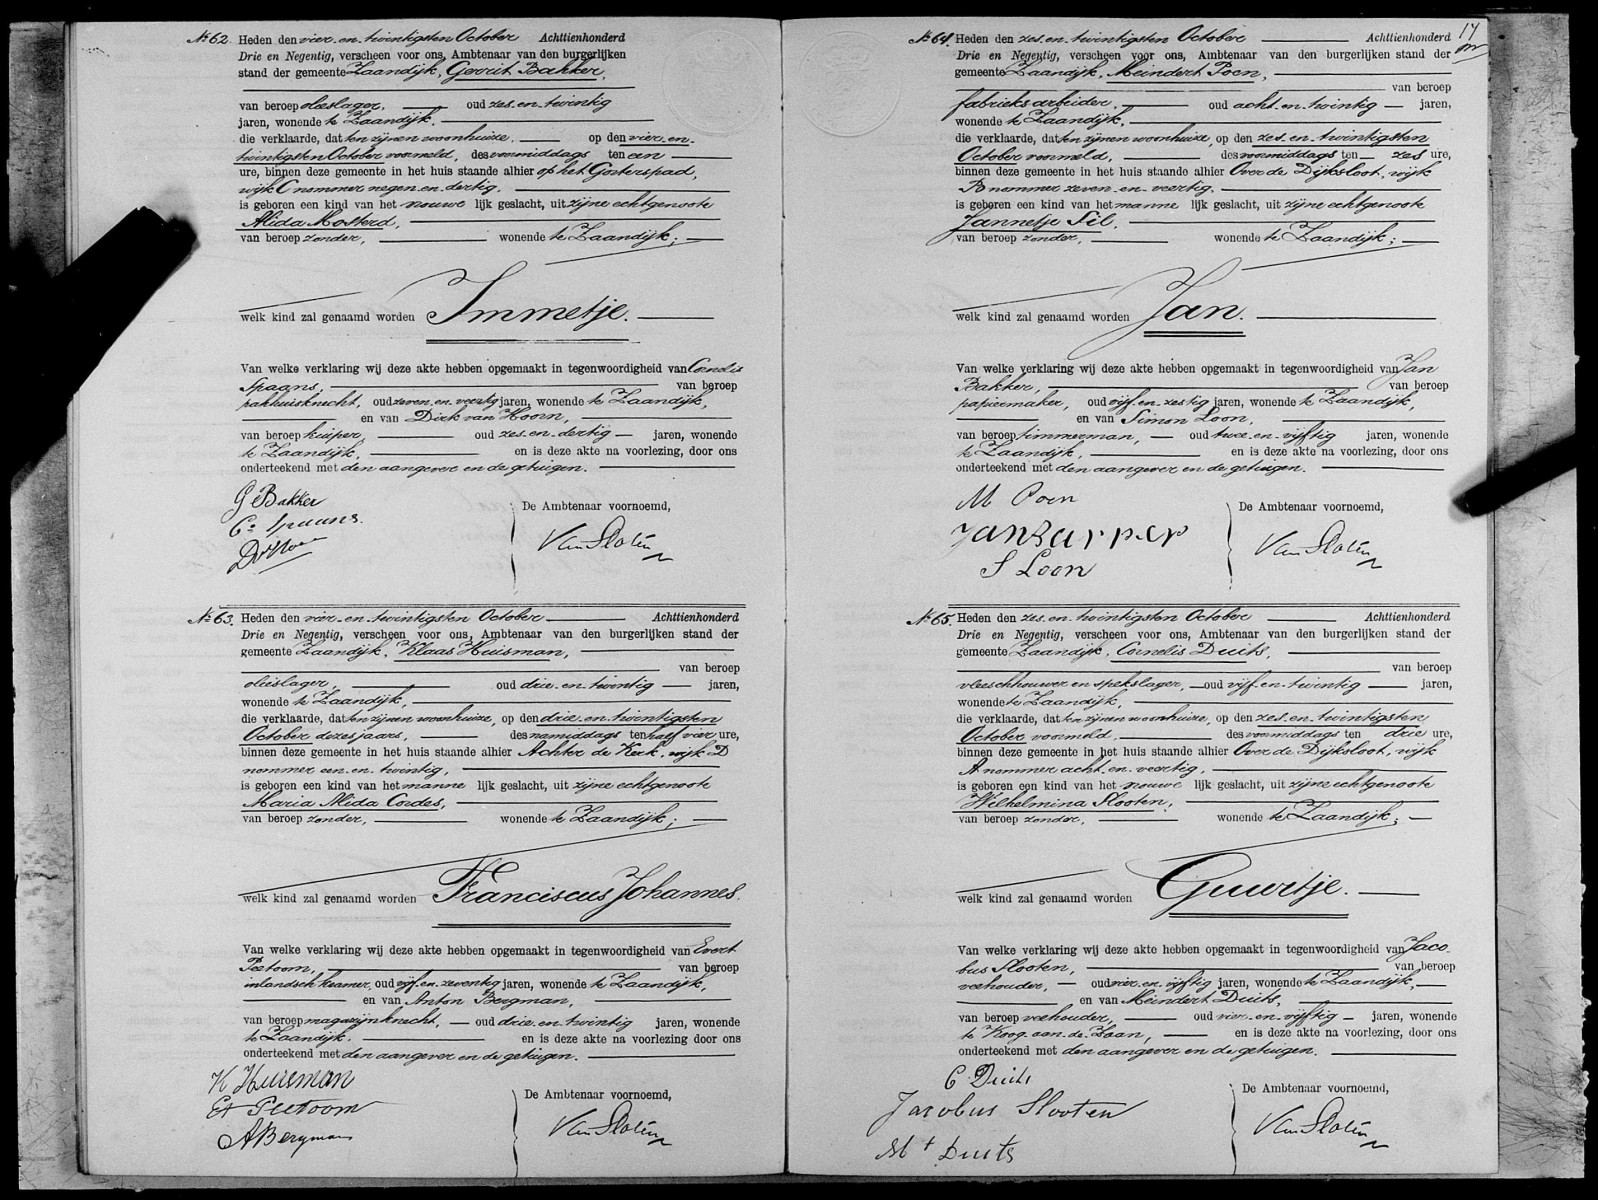 No 62. Heden den vier-en-twintigsten October Achttienhonderd
Drie en Negentig, verscheen voor ons, Ambtenaar van den burgerlijken
stand der gemeente Zaandijk, Gerrit Bakker,
van beroep olieslager, oud zes-en-twintig
jaren, wonende te Zaandijk,
die verklaarde, dat ten zijnen woonhuize, op den vier-en-
twintigsten October voormeld, des voormiddags ten een
ure, binnen deze gemeente in het huis staande alhier op het Gorterspad,
wijk C nommer negen-en-dertig,
is geboren een kind van het vrouwe lijk geslacht, uit zijne echtgenoote
Alida Mosterd,
van beroep zonder, wonende te Zaandijk;
welk kind zal genaamd worden Immetje.
Van welke verklaring wij deze akte hebben opgemaakt in tegenwoordigheid van Cornelis
Spaans, van beroep
pakhuisknecht, oud zeven-en-veertig jaren, wonende te Zaandijk,
en van Dirk van Hoorn,
van beroep kuiper, oud zes-en-dertig jaren, wonende
te Zaandijk, en is deze akte na voorlezing, door ons
onderteekend met den aangever en de getuigen.
G Bakker
Cs Spaans
De Ambtenaar voornoemd,
Van Sloten
No 63. Heden den vier-en-twintigsten October Achttienhonderd
Drie en Negentig, verscheen voor ons, Ambtenaar van den burgerlijken stand der
gemeente Zaandijk, Klaas Huisman,
van beroep
olieslager, oud drie-en-twintig jaren,
wonende te Zaandijk,
die verklaarde, dat ten zijnen woonhuize, op den drie-en-twintigsten
October dezes jaars, des namiddags ten half vier ure,
binnen deze gemeente in het huis staande alhier Achter de Kerk, wijk D
nommer een-en-twintig,
is geboren een kind van het manne lijk geslacht, uit zijne echtgenoote
Maria Alida Cordes,
van beroep zonder, wonende te Zaandijk;
welk kind zal genaamd worden Franciscus Johannes.
Van welke verklaring wij deze akte hebben opgemaakt in tegenwoordigheid van Evert
Peetoom, van beroep
inlandsch kramer, oud vijf-en-zeventig jaren, wonende te Zaandijk,
en van Anton Bergman,
van beroep magazijnknecht, oud drie-en-twintig jaren, wonende
te Zaandijk, en is deze akte na voorlezing door ons
onderteekend met den aangever en de getuigen.
K Huisman
Et Peetoom
A Bergman
De Ambtenaar voornoemd,
Van Sloten
17
No 64. Heden den zes-en-twintigsten October Achttienhonderd
Drie en Negentig, verscheen voor ons, Ambtenaar van den burgerlijken stand der
gemeente Zaandijk, Meindert Poen,
van beroep
fabrieksarbeider, oud acht-en-twintig jaren,
wonende te Zaandijk,
die verklaarde, dat ten zijnen woonhuize, op den zes-en-twintigsten
October voormeld, des voormiddags ten zes ure,
binnen deze gemeente in het huis staande alhier Over de Dijksloot, wijk
B nommer zeven-en-veertig,
is geboren een kind van het manne lijk geslacht, uit zijne echtgenoote
Jannetje Sil,
van beroep zonder, wonende te Zaandijk;
welk kind zal genaamd worden Jan.
Van welke verklaring wij deze akte hebben opgemaakt in tegenwoordigheid van Jan
Bakker, van beroep
papiermaker, oud vijf-en-zestig jaren, wonende te Zaandijk,
en van Simon Loon,
van beroep timmerman, oud twee-en-vijftig jaren, wonende
te Zaandijk, en is deze akte na voorlezing, door ons
onderteekend met den aangever en de getuigen.
M Poen
S Loon
De Ambtenaar voornoemd,
Van Sloten
No 65. Heden den zes-en-twintigsten October Achttienhonderd
Drie en Negentig, verscheen voor ons, Ambtenaar van den burgerlijken stand der
gemeente Zaandijk, Cornelis Duits,
van beroep
vleeschhouwer en spekslager, oud vijf-en-twintig jaren,
wonende te Zaandijk,
die verklaarde, dat ten zijnen woonhuize, op den zes-en-twintigsten
October voormeld, des voormiddags ten drie ure,
binnen deze gemeente in het huis staande alhier Over de Dijksloot, wijk
A nommer acht-en-veertig,
is geboren een kind van het vrouwe lijk geslacht, uit zijne echtgenoote
Wilhelmina Slooten,
van beroep zonder, wonende te Zaandijk;
welk kind zal genaamd worden Guurtje.
Van welke verklaring wij deze akte hebben opgemaakt in tegenwoordigheid van Jaco-
bus Slooten, van beroep
veehouder, oud vier-en-vijftig jaren, wonende te Zaandijk,
en van Meindert Duits,
van beroep veehouder, oud vier-en-vijftig jaren, wonende
te Koog-aan-de-Zaan, en is deze akte na voorlezing, door ons
onderteekend met den aangever en de getuigen.
C Duits
Jacobus Slooten
Mt Duits
De Ambtenaar voornoemd,
Van Sloten